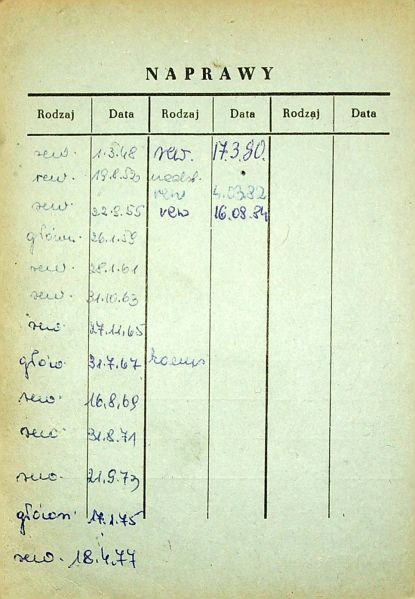 NAPRAWY
Rodzaj Data Rodzaj Data Rodzaj Data
rew. 1.3.48 rew. 17.3.80.
rew. 19.8.53
rew 4.03.82
rew. 22.8.55 rew 16.08.84
główn. 26.1.59
rew. 28.1.61
rew. 31.10.63
rew. 27.11.65
główn. 31.7.67
rew. 16.8.69
rew. 31.8.71
rew. 21.9.73
główn. 17.1.75
rew. 18.4.77